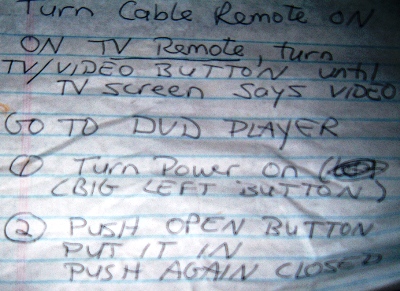 Turn Cable Remote ON
ON TV Remote, turn
TV/VIDEO BUTTON until
TV screen says VIDEO
GO TO DVD PLAYER
① Turn Power on (
(BIG LEFT BUTTON)
② PUSH OPEN BUTTON
PUT IT IN
PUSH AGAIN CLOSED